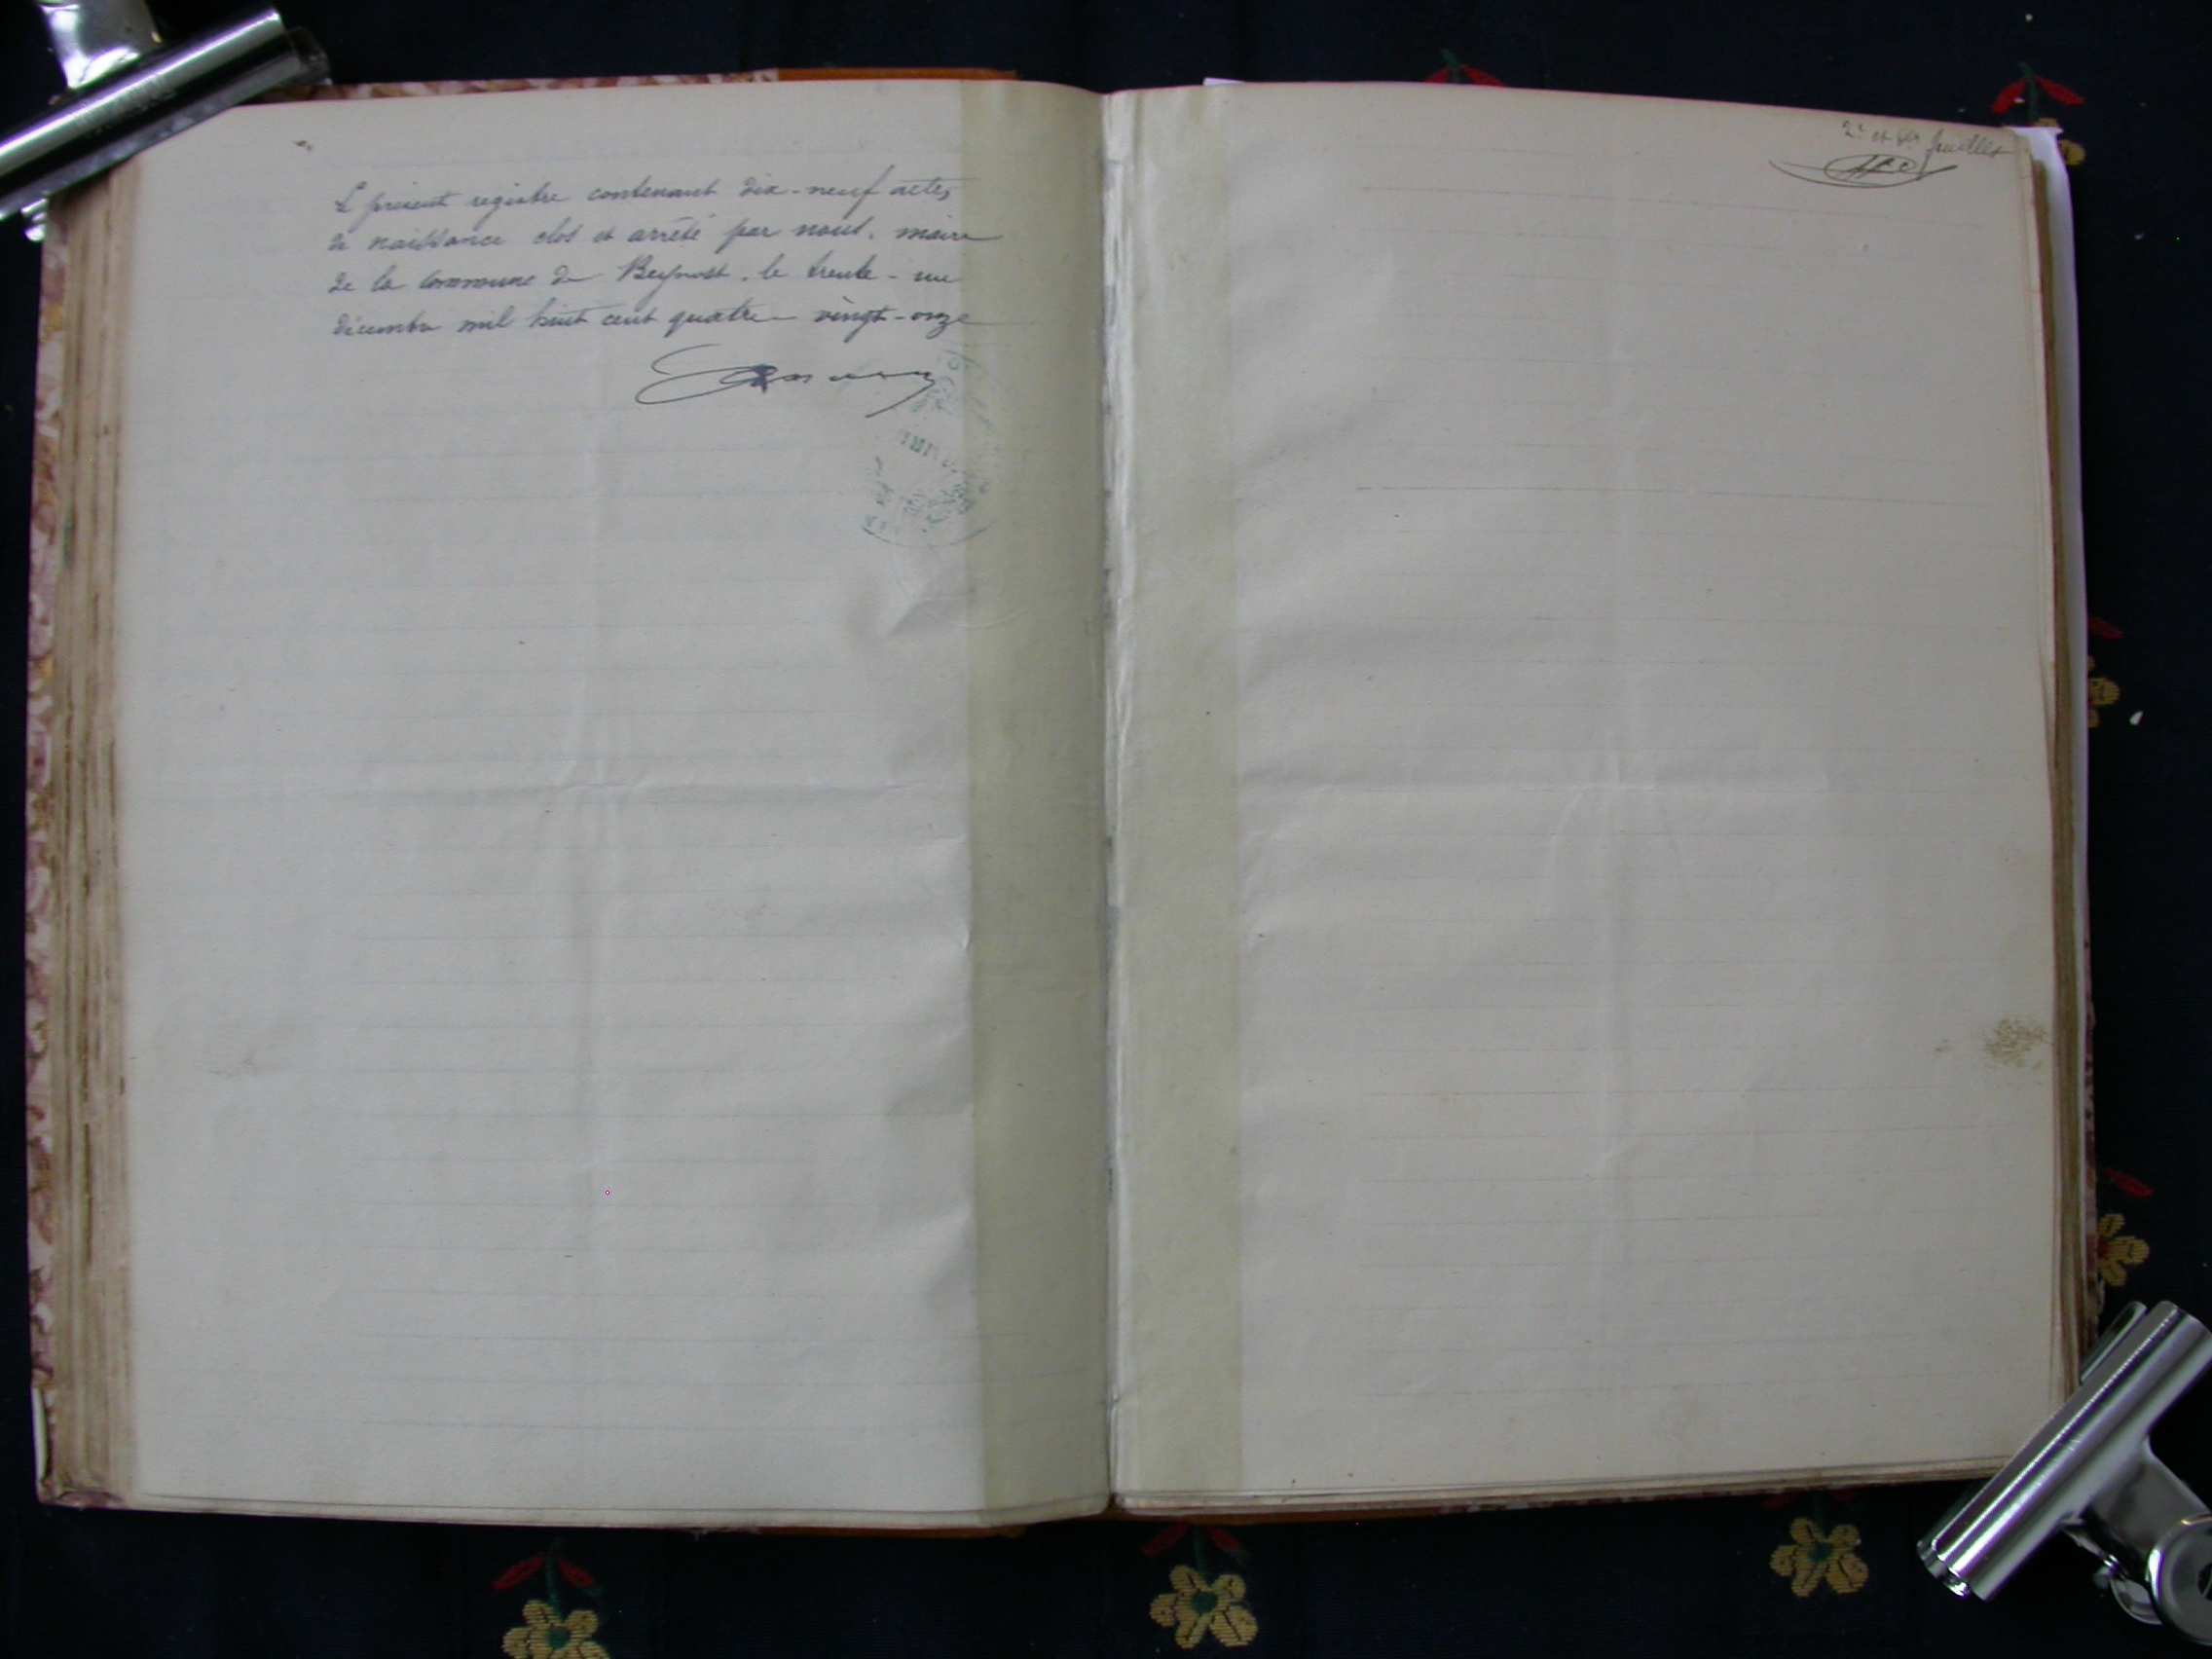 Le présent registre contenant dix-neuf actes
de naissance clos et arrêté par nous, maire
de la commune de Beynost, le trente-un
décembre mil huit cent quatre-vingt-onze
2e et feuillet